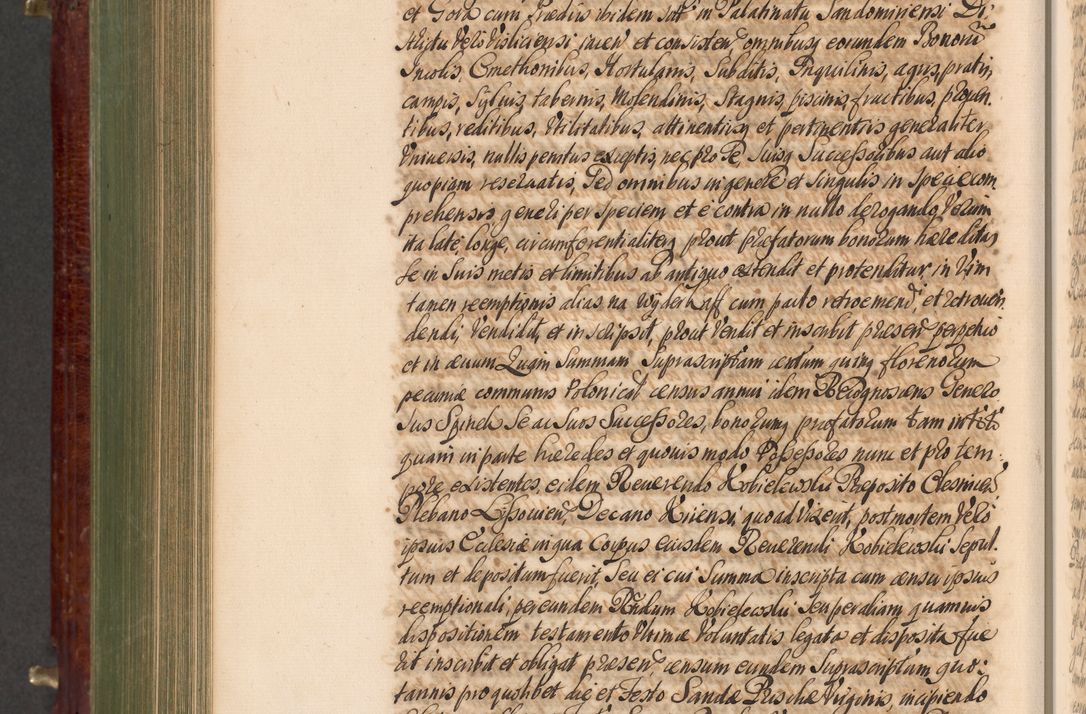 et Gora cum Prædiis ibidem sitt in Palatinatu Sandomiriensi Di-
strictu Vero Visliciensi jacen et consisten omnibusq eorundem Bonorũ
Incolis, Cmethonibus, Hortulanis, Subditis, Inquilinis, agris, pratis,
campis, Sylvis, tabernis, Molendinis, Stagnis, piscinis, fructibus, proven-
tibus, reditibus, Utilitatibus, attinentiisq et pertinentiis generaliter
Universis, nullis penitus exceptis, nec pro Se, Suisq Successoribus aut alio
quopiam reservatis, Sed omnibus in genere et singulis in specie com
prehensis generi per speciem et e contra in nullo derogando Verum
ita late longe, circumferentialiterq prout præfatorum bonorum hæreditas
se in suis metis et limitibus ab antiquo extendit et protenditur in Vim
tamen reemptionis alias na wyderkaff cum pacto retroemend, et retroven
dendi, Vendidit, et inscripsit, prout Vendit et inscribit presen perpetuo
et in ævum Quam Summam Suprascriptam centum quinq florenorum
pecuniæ communis Polonical census annui idem Recognoscens Genero
sus Spinek Se ac Suos Successores, bonorumq præfatorum tam in toto
quam in parte hæredes et quovis modo Possessores nunc et pro tem-
pore existentes eidem Reverendo Kobielewski Preposito Olesnicen
Plebano Lissovien, Decano Kiiensi, quoad Vixerit, post mortem Vero
ipsius Ecclesiæ in qua Corpus eiusdem Reverendi Kobielewski Sepul-
tum et depositum fuerit, Seu ei cui Summa inscripta cum censu ipsius
reemptionali, per eundem Rndum Kobielewski Seu per aliam quamvis
dispositionem testamento Ultimæ Voluntatis legata et disposita fue
rit inscribit et obligat presen censum eundem Suprascriptam quo-
tannis pro quolibet die et Festo Sanctæ Priscæ Virginis, incipiendo